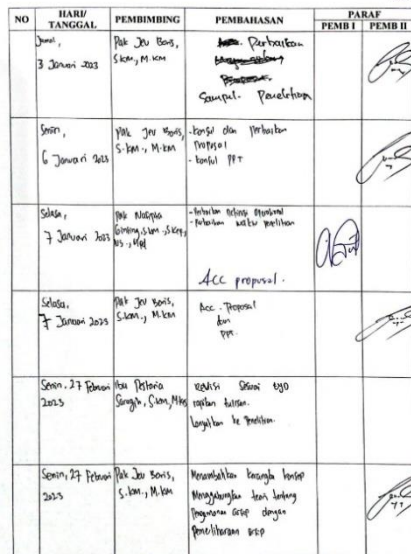 NO HARI/ TANGGAL PEMBIMBING PEMBAHASAN PARAF
PEMB I PEMB II
Jumat, 3 Januari 2023
Pak Jev Boris, S.km, M.KM
Perbaikan
Sampul. Penelitian
Senin, 6 Januari 2023
Pak Jev Boris, S.km., M.km
- konsul dan Perbaikan Proposal
- konsul PPT
Selasa, 7 Januari 2023
Pak Nasipta Ginting, S.km., S.Kep,
- Perbaikan definisi operasional
- Perbaikan waktu penelitian
Acc proposal.
Selasa, 7 Januari 2023
Pak Jev Boris, S.km., M.km
Acc - Proposal
dan
PPT.
Senin, 27 Februari 2023
Ibu Pestaria Saragih, S.km, M.kes
Revisi Sesuai EYD
rapikan tulisan.
Lanjutkan ke Penelitian.
Senin, 27 Februari 2023
Pak Jev Boris, S.km., M.km
Menambahkan kerangka konsep
Menggabungkan teori tentang
Pengamanan arsip dengan
pemeliharaan arsip